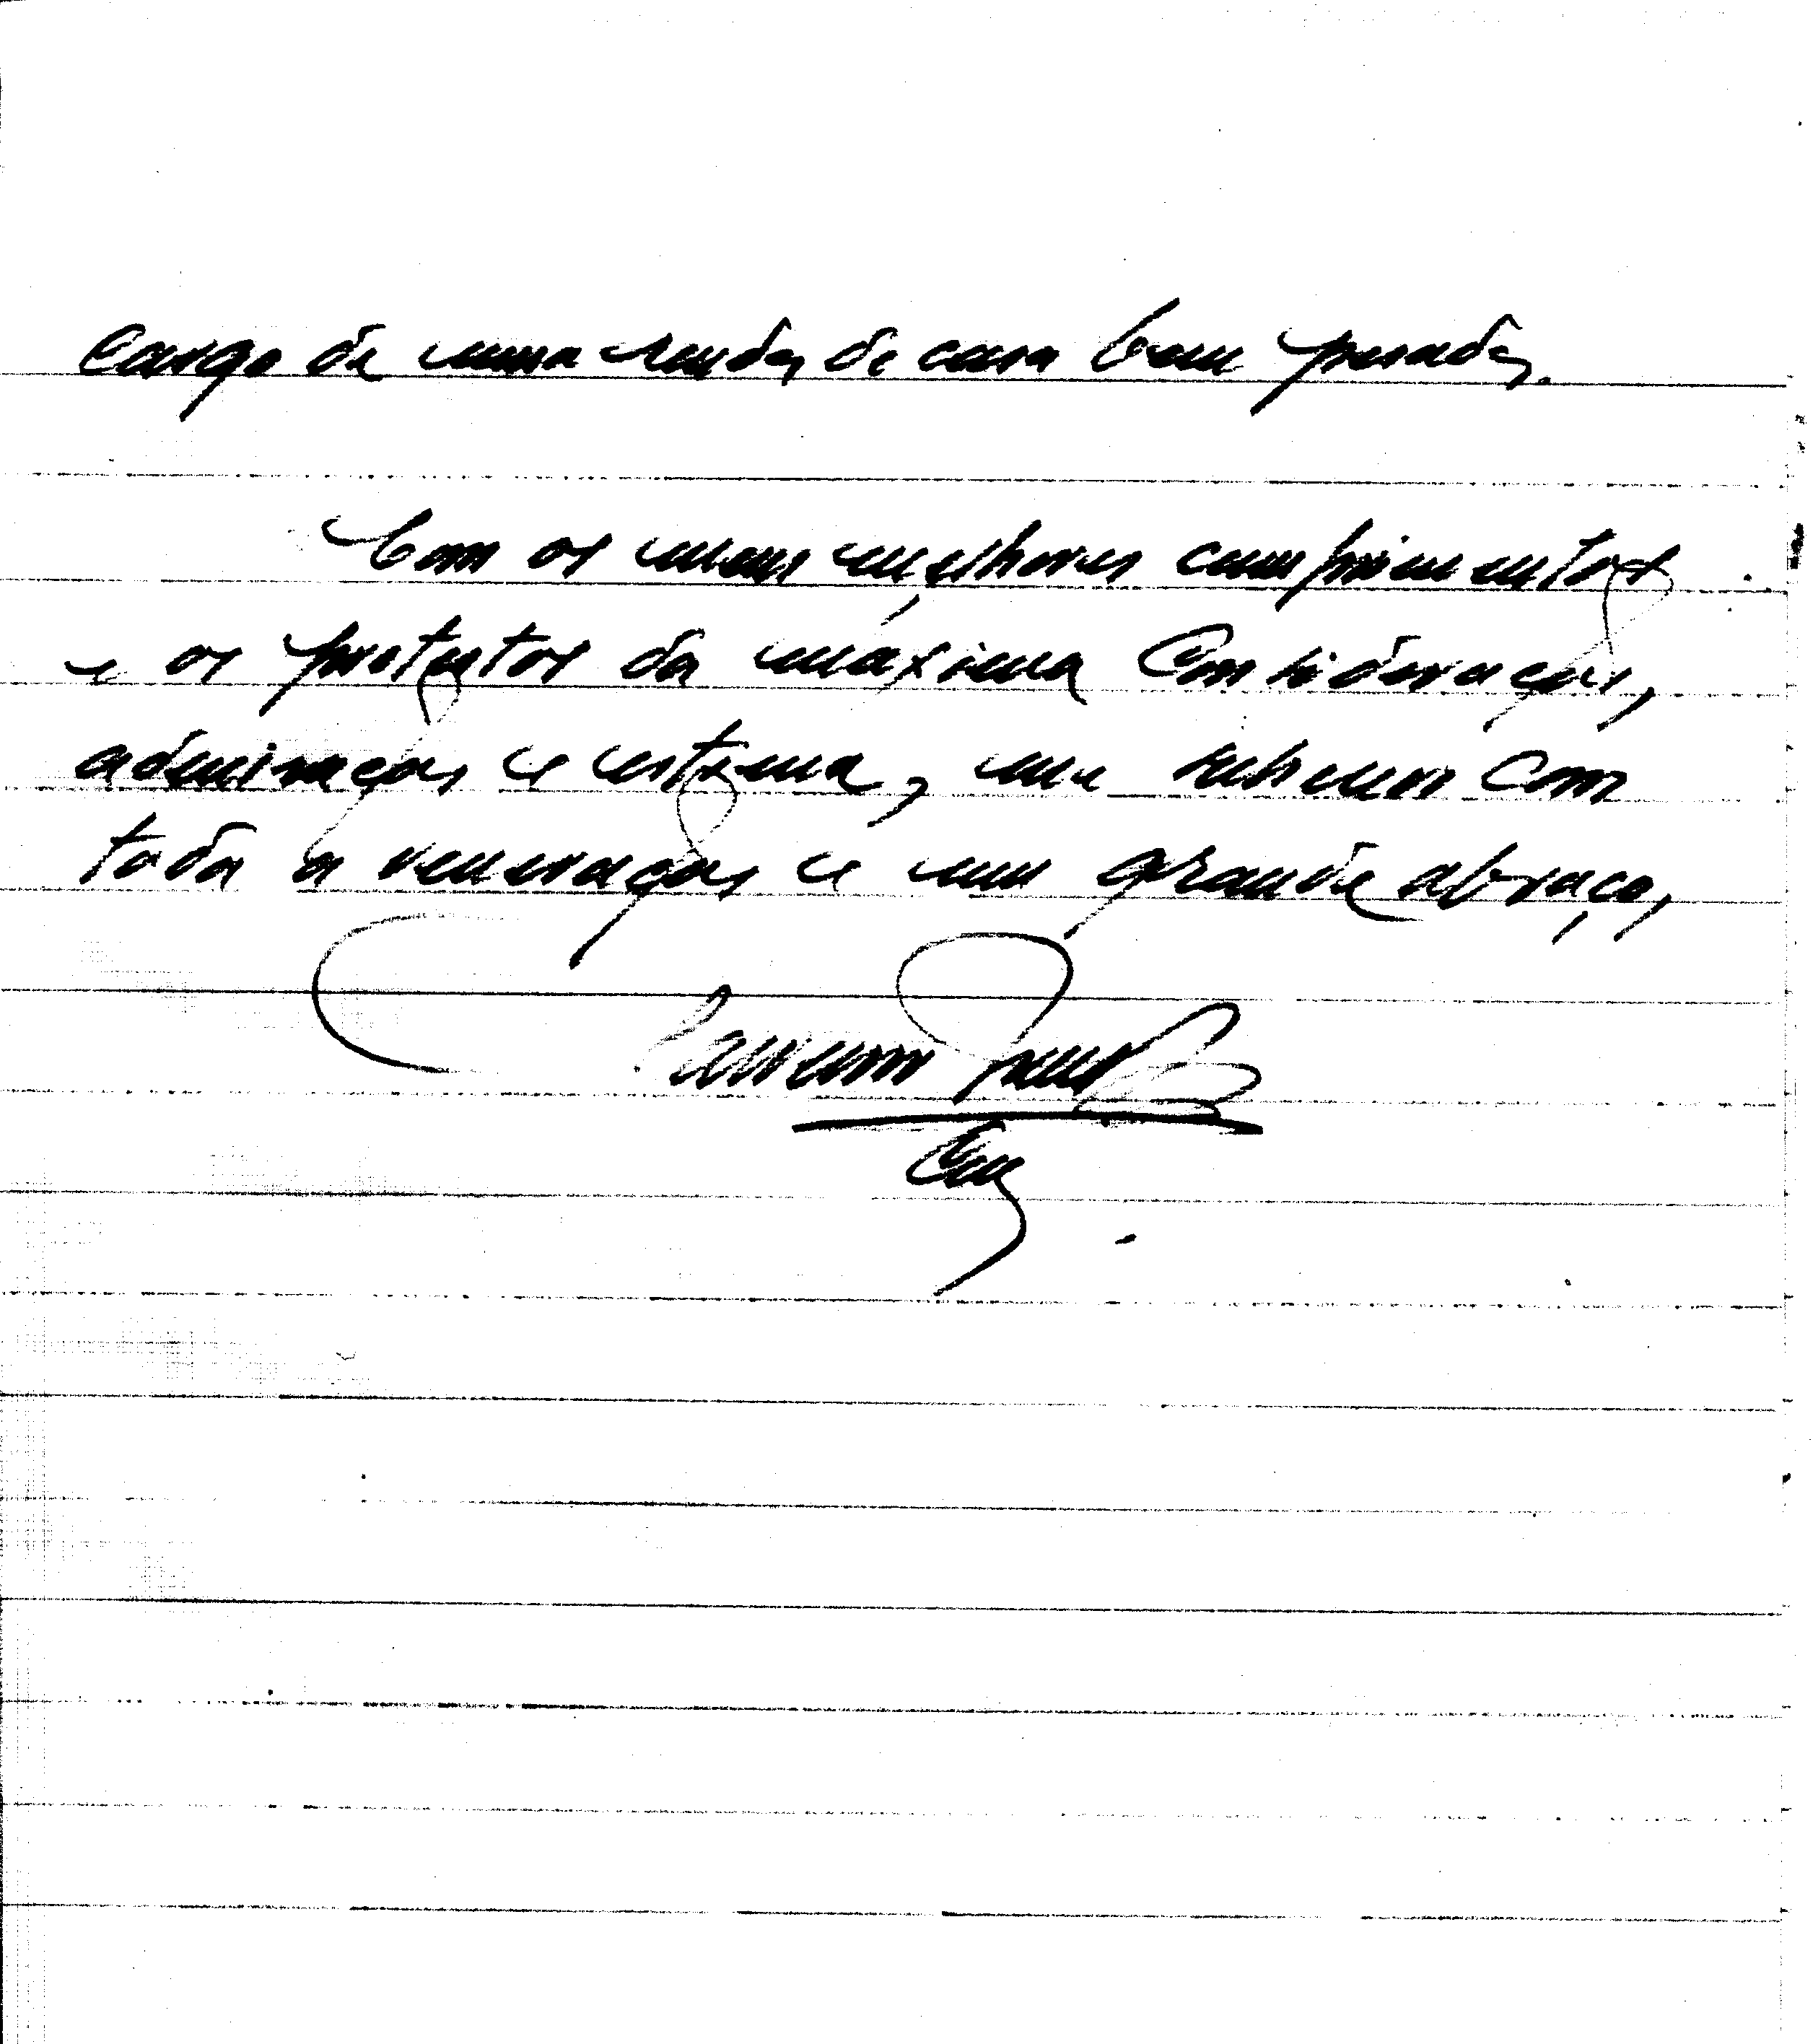 cargo de uma renda de casa bem pesada.
Com os meus melhores cumprimentos
e os protestos da máxima consideração,
admiração e estima, me subscrevo com
toda a veneração e um grande abraço,